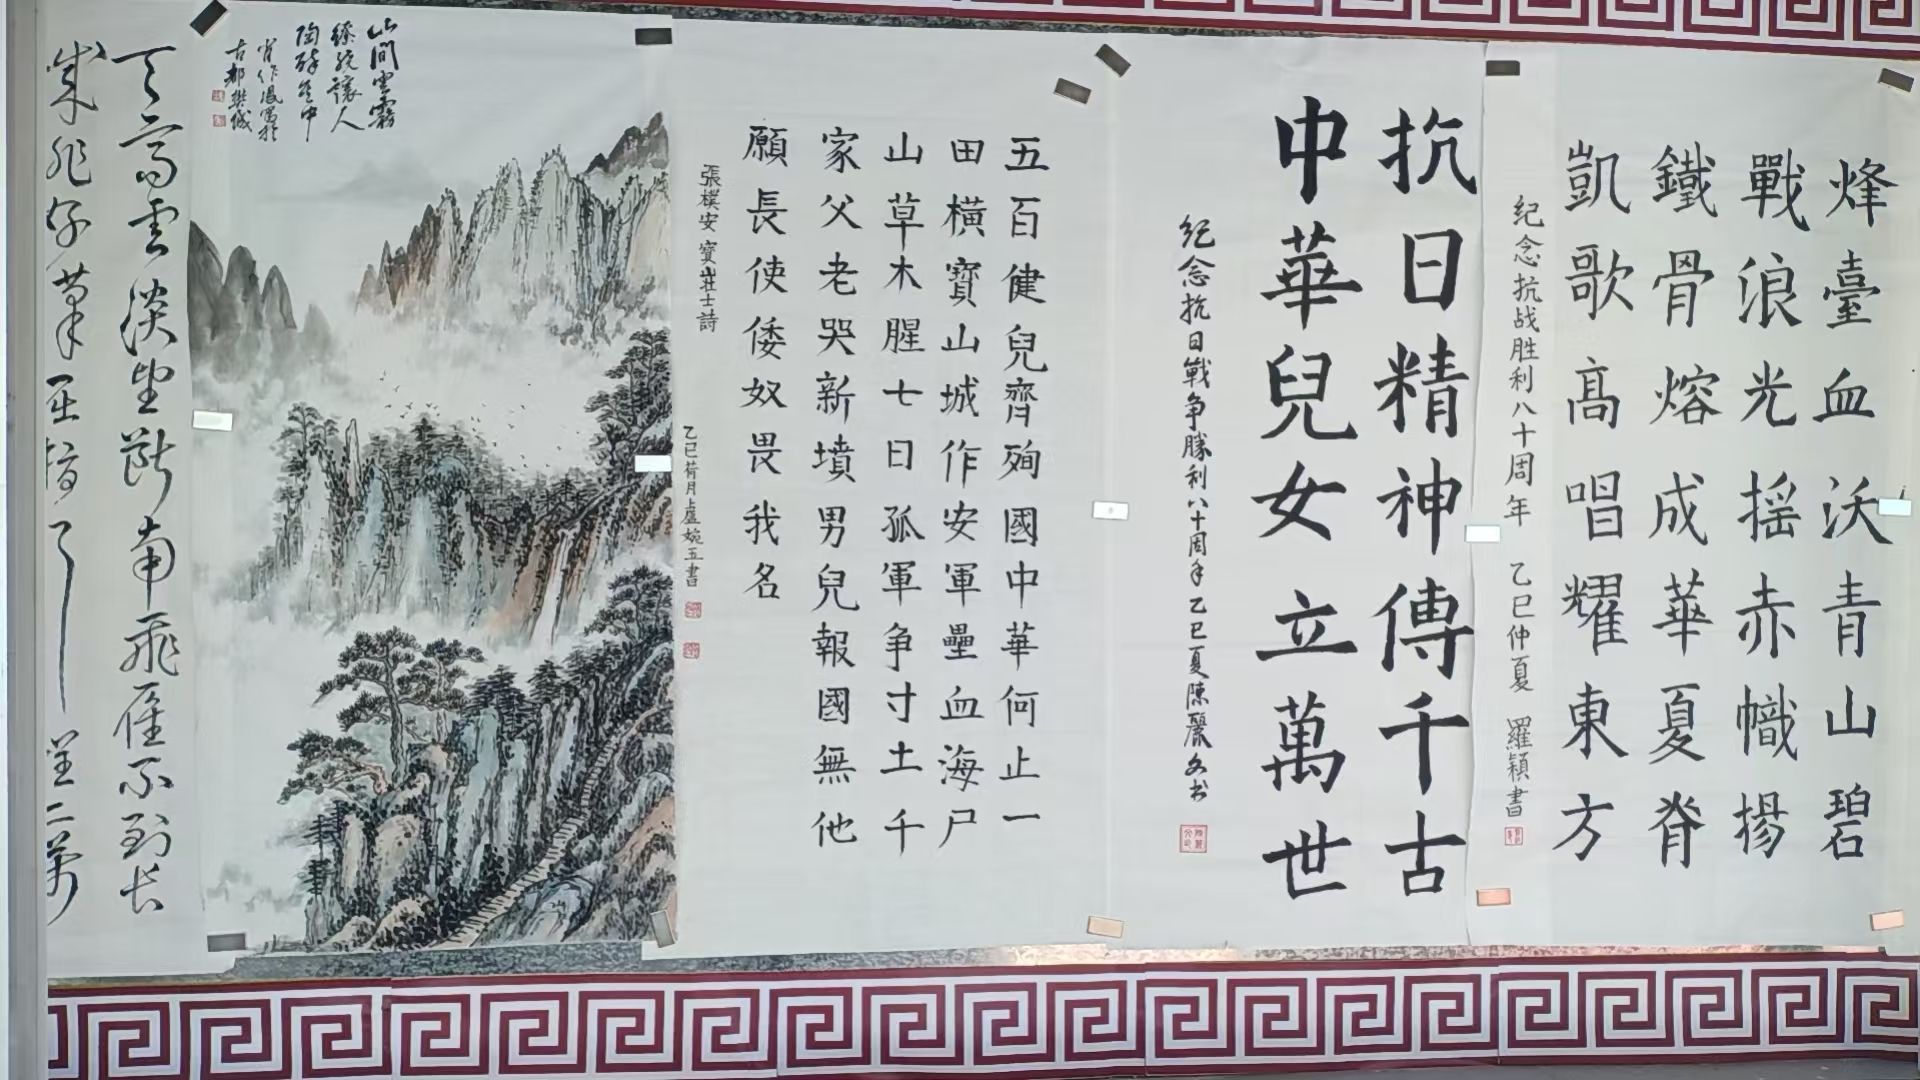 烽臺血沃青山碧
戰浪光摇赤幟揚
鐵骨熔成華夏脊
凱歌高唱耀東方
纪念抗战胜利八十周年 乙巳仲夏 羅穎書
抗日精神傳千古
中華兒女立萬世
纪念抗日戰争勝利八十周年乙巳夏陳麗书
五百健兒齊殉國中華何止一
田橫寶山城作安軍壘血海尸
山草木腥七日孤軍争寸土千
家父老哭新墳男兒報國無他
願長使倭奴畏我名
張樸安 寶山壯士詩
乙巳荷月盧婉五書
山間雲霧
繚繞讓人
陶醉其中
肖作鳳寫於
古都樊城
天高雲淡望斷南飛雁不到长
城非好漢屈指行程二萬